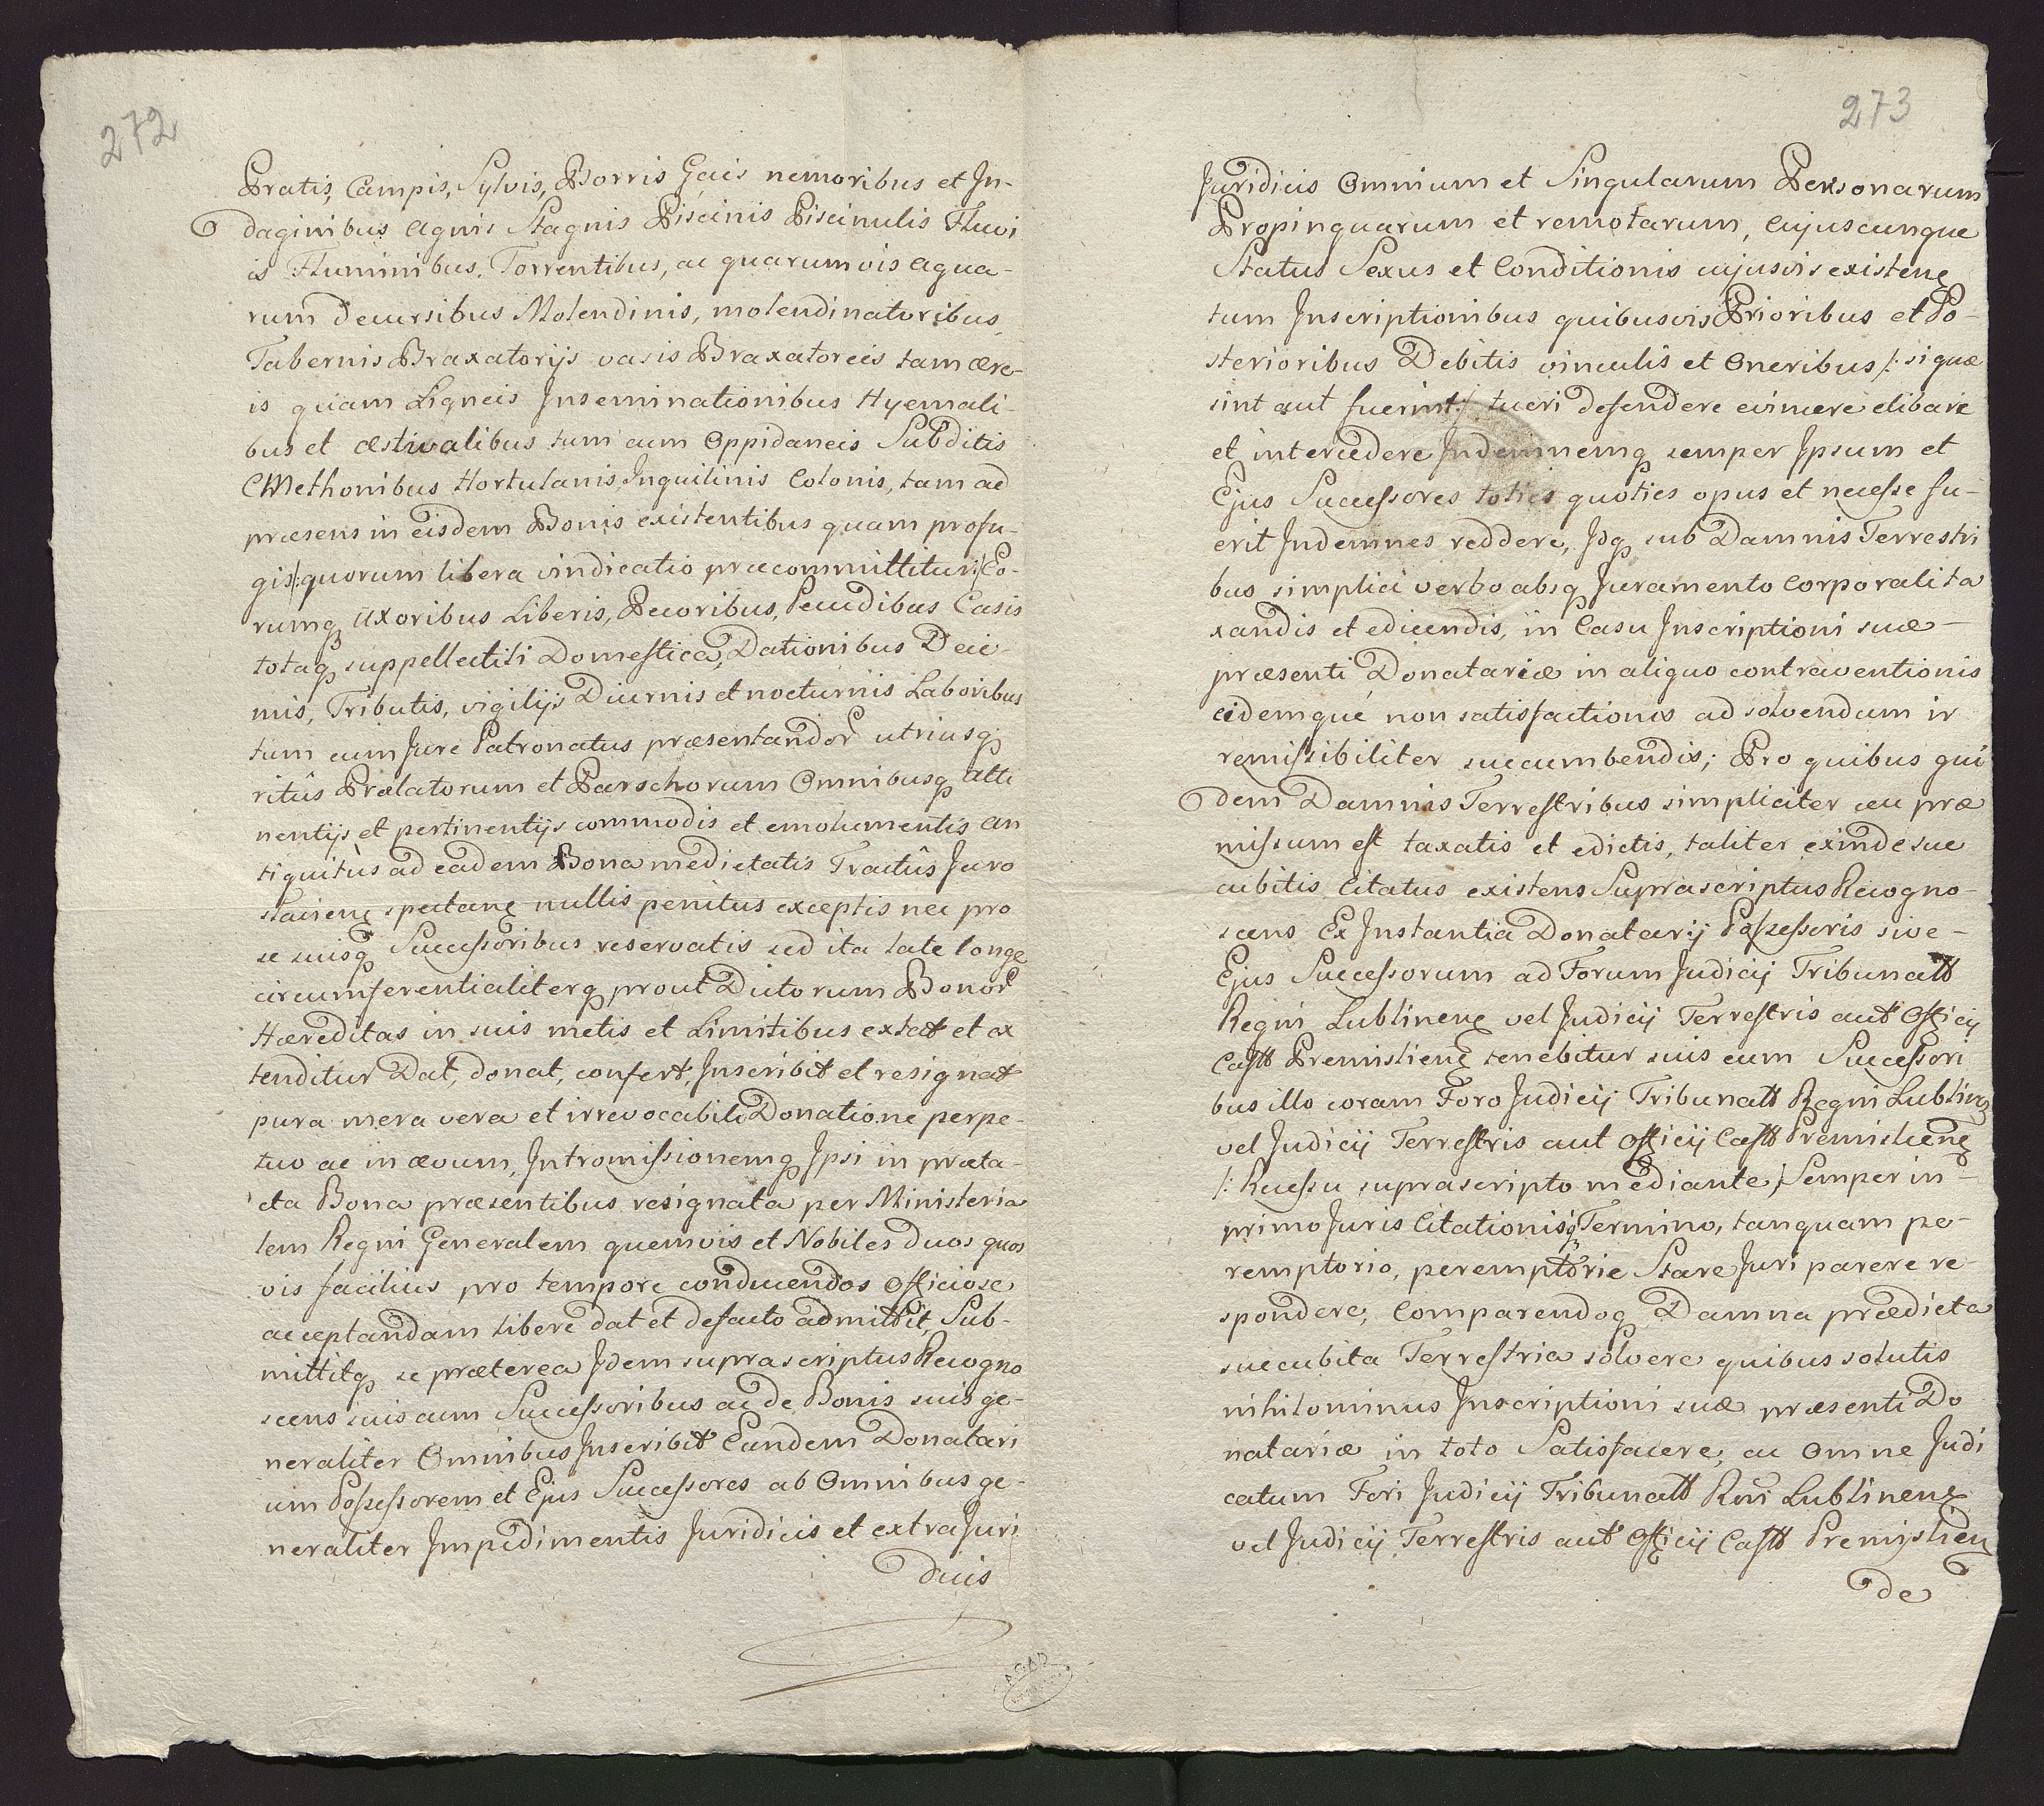 272
Pratis, Campis, Sylvis, Borris Gais nemoribus et In-
daginibus agnis Stagnis Piscinis Piscinulis Fluvi
is Fluminibus, Torrentibus, ac quarumvis aqua-
rum decursibus Molendinis, molendinatoribus,
Tabernis Braxatorijs vasis Braxatoreis tam ære-
is quam Ligneis Inseminationibus Hyemali-
bus et æstivalibus tum cum Oppidaneis Subditis
CMethonibus Hortulanis, Inquilinis Colonis, tam ad
præsens in eisdem Bonis existentibus quam profu-
gis /:quorum libera vindicatio præcommittitur:/ Eo-
rumq Uxoribus Liberis, Pecoribus, Pecudibus Casis
totaq suppellectili Domestica, Dationibus Deci-
mis, Tributis, vigilijs Diurnis et nocturnis Laboribus
tum cum Jure Patronatus præsentandor utriusq
ritûs Prælatorum et Parochorum Omnibusq atti
nentijs et pertinentijs commodis et emolumentis an
tiquitùs ad eadem Bona medietatis Tractûs Juro
stavien spectan nullis penitus exceptis nec pro
se suisq Successoribus reservatis sed ita late longe
circumferentialiterq prout Dictorum Bonor
Hæreditas in suis metis et Limitibus extat et ex
tenditur Dat, donat, confert, Inscribit et resignat
pura mera vera et irrevocabili Donatione perpe-
tuo ac in ævum, Intromissionemq Ipsi in præta-
cta Bona præsentibus resignata per Ministeria
lem Regni Generalem quemvis et Nobiles duos quos
vis facilius pro tempore conducendos Officiose
acceptandam libere dat et defacto admittit, Sub-
mittitq se præterea Idem suprascriptus Recogno
scens suis cum Successoribus ac de Bonis suis ge-
neraliter Omnibus Inscribit Eundem Donatari
um Possessorem et Ejus Successores ab Omnibus ge-
neraliter Impedimentis Juridicis et extraJuri
dicis
273
Juridicis Omnium et Singularum Personarum
Propinquarum et remotarum, cujuscunque
Status Sexus et Conditionis cujusvis existen
tum Inscriptionibus quibusvis Prioribus et Po-
sterioribus Debitis vinculis et Oneribus /: si quæ
sint aut fuerint:/ tueri defendere evincere elibare
et intercedere Indemnemq semper Ipsum et
Ejus Successores toties quoties opus et necesse fu-
erit Indemnes reddere, Idq sub Damnis Terrestri
bus simplici verbo absq Juramento Corporali ta
xandis et edicendis, in Casu Inscriptioni suæ
præsenti Donatariæ in aliquo contraventionis
eidemque non satisfactionis ad solvendum ir
remissibiliter succumbendis; Pro quibus qui
dem Damnis Terrestribus simpliciter ceu præ
missum est taxatis et edictis, taliter exinde suc
cubitis Citatus existens Suprascriptus Recogno-
scens Ex Instantia Donatarij Possessoris sive
Ejus Successorum ad Forum Judicij Tribunatt
Regni Lublinen vel Judicij Terrestris aut Officij
Castt Premislien tenebitur suis cum Successori
bus illo coram Foro Judicij Tribunatt Regni Lublin
vel Judicij Terrestris aut Officij Castt Premislien
/: Recessu suprascripto mediante:/ Semper in
primo Juris Citationisq Termino, tanquam pe-
remptorio, peremptorie Stare Juri parere re-
spondere, Comparendoq Damna prædicta
succubita Terrestria solvere quibus solutis
nihilominus Inscriptioni suæ præsenti Do
natariæ in toto Satisfacere, ac Omne Judi
catum Fori Judicij Tribunatt Rni Lublinen
vel Judicij Terrestris aut Officij Castt Premyslien
de
AGAD